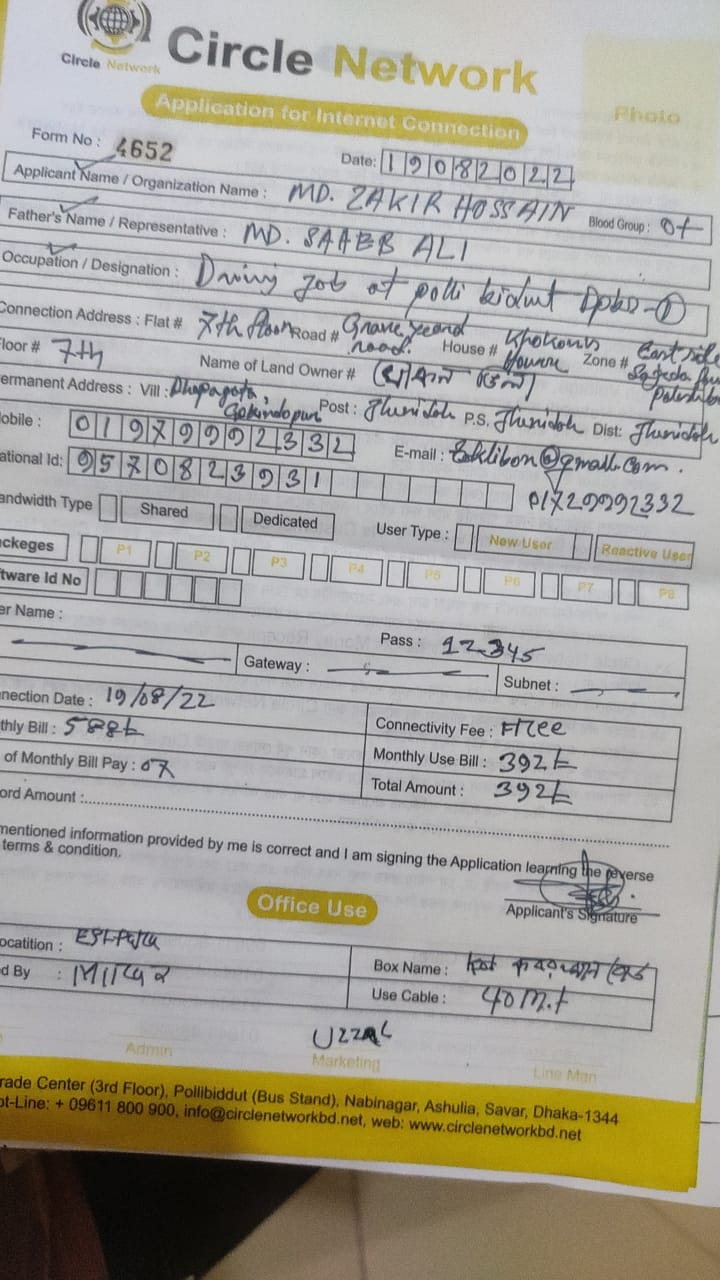 Circle Network
Circle Network
Application for Internet Connection
Photo
Form No : 4652
Date: 19082022
Applicant Name / Organization Name : MD. ZAKIR HOSSAIN Blood Group : O+
Father's Name / Representative : MD. SAAEB ALI
Occupation / Designation : job at polli
Connection Address : Flat # 7th floor Road # road. House # Zone # East side
loor # 7th Name of Land Owner #
ermanent Address : Vill : Post : P.S. Dist:
obile : 01979992332 E-mail : @gmail.com.
ational Id: 9570823931 01729992332
andwidth Type Shared Dedicated User Type : New User Reactive User
ckeges P1 P2 P3 P4 P5 P6 P7 P8
tware Id No
er Name : Pass : 12345
Gateway : Subnet :
nnection Date : 19/08/22 Connectivity Fee : Free
thly Bill : 588t Monthly Use Bill : 392t
of Monthly Bill Pay : 07 Total Amount : 392t
ord Amount :
mentioned information provided by me is correct and I am signing the Application learning the reverse
terms & condition.
Applicant's Signature
Office Use
ocatition : Box Name :
d By : Use Cable : 40 m.t
UZZAL
Admin Marketing Line Man
rade Center (3rd Floor), Pollibiddut (Bus Stand), Nabinagar, Ashulia, Savar, Dhaka-1344
ot-Line: + 09611 800 900, info@circlenetworkbd.net, web: www.circlenetworkbd.net